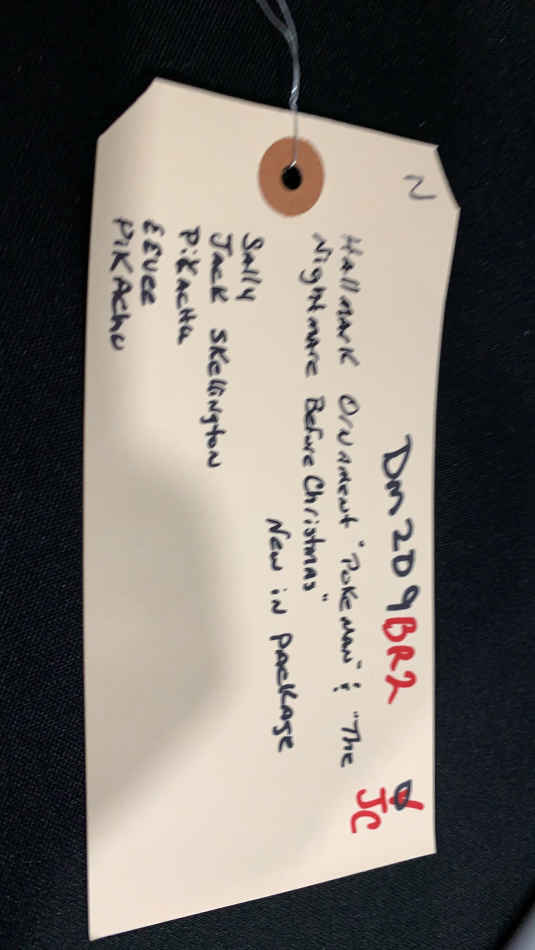 N
Dm2D9BR2
JC
Hallmark Ornament "Pokeman" & "The
Nightmare Before Christmas"
New in package
Sally
Jack Skellington
Pikachu
EEVEE
PiKAchu